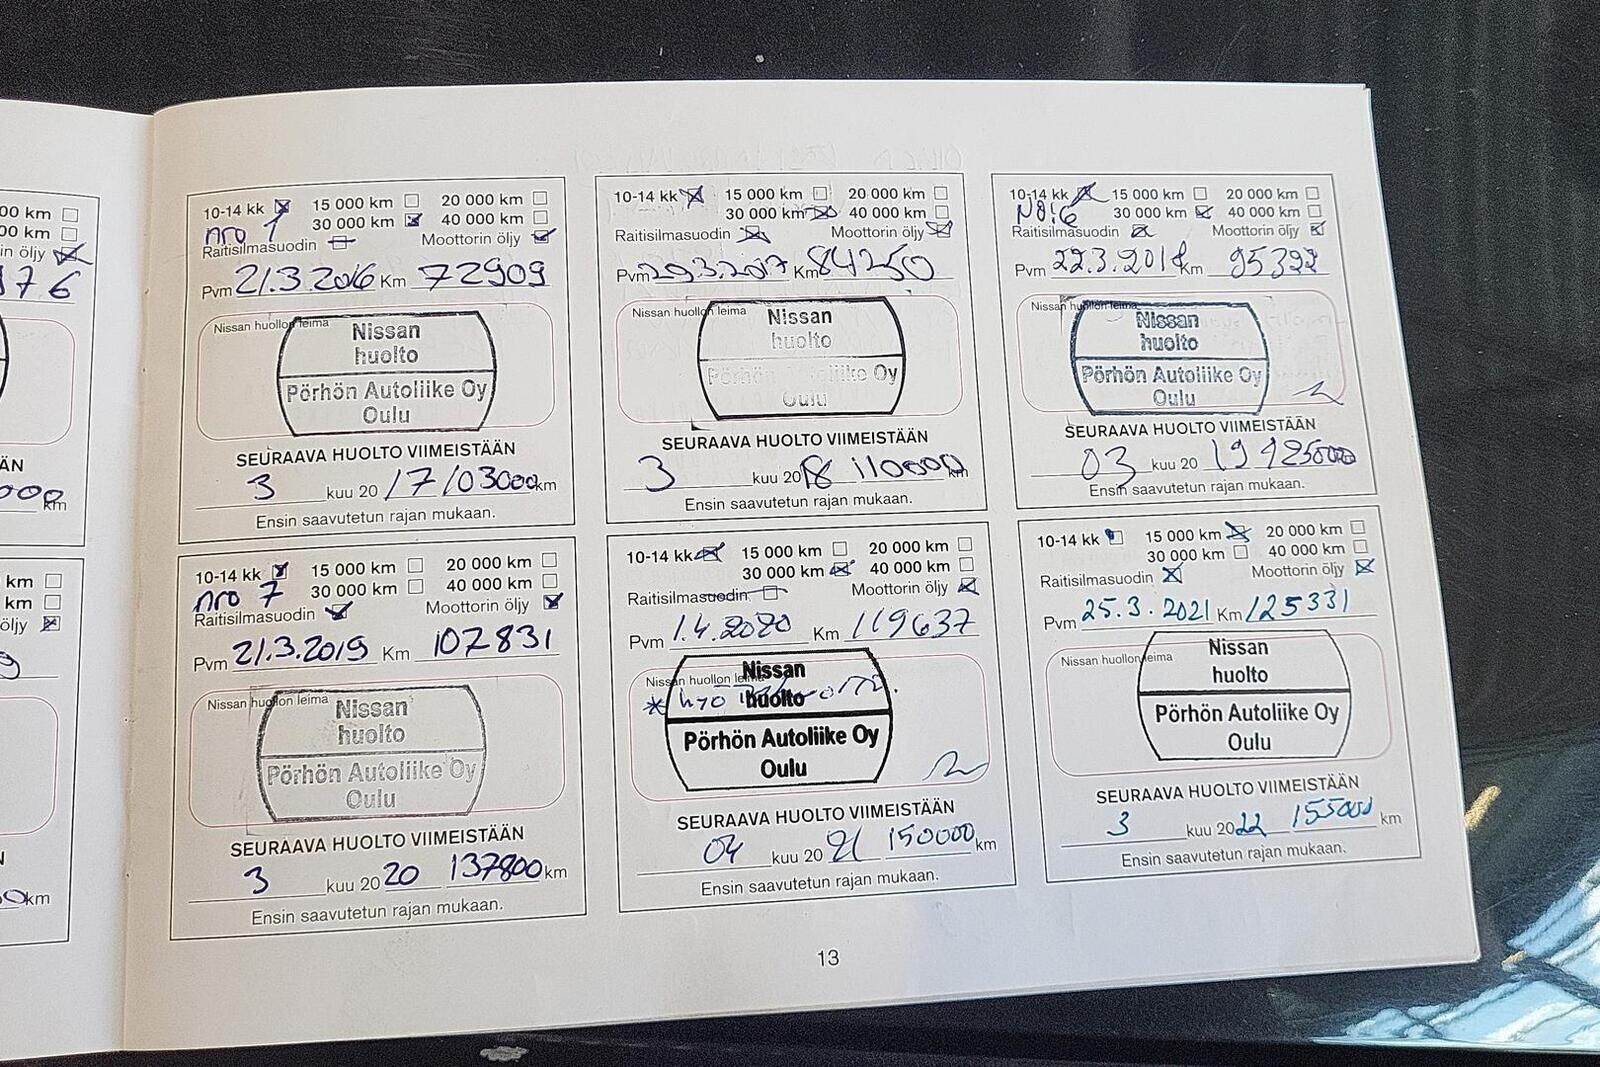 00 km
00 km
in öljy
976
ÄN
000 km
km
km
öljy
9
N
0km
10-14 kk 15 000 km 20 000 km
nro 1 30 000 km 40 000 km
Raitisilmasuodin Moottorin öljy
Pvm 21.3.2016 Km 72909
Nissan huollon leima
Nissan
huolto
Pörhön Autoliike Oy
Oulu
SEURAAVA HUOLTO VIIMEISTÄÄN
3 kuu 20 17 103000 km
Ensin saavutetun rajan mukaan.
10-14 kk 15 000 km 20 000 km
30 000 km 40 000 km
Raitisilmasuodin Moottorin öljy
Pvm 29.3.2017 Km 84250
Nissan huollon leima
Nissan
huolto
Pörhön Autoliike Oy
Oulu
SEURAAVA HUOLTO VIIMEISTÄÄN
3 kuu 2018 110000 km
Ensin saavutetun rajan mukaan.
10-14 kk 15 000 km 20 000 km
No:6 30 000 km 40 000 km
Raitisilmasuodin Moottorin öljy
Pvm 22.3.2018 Km 95322
Nissan huollon leima
Nissan
huolto
Pörhön Autoliike Oy
Oulu
SEURAAVA HUOLTO VIIMEISTÄÄN
03 kuu 20 19 125000 km
Ensin saavutetun rajan mukaan.
10-14 kk 15 000 km 20 000 km
nro 7 30 000 km 40 000 km
Raitisilmasuodin Moottorin öljy
Pvm 21.3.2019 Km 107831
Nissan huollon leima
Nissan
huolto
Pörhön Autoliike Oy
Oulu
SEURAAVA HUOLTO VIIMEISTÄÄN
3 kuu 20 20 137800 km
Ensin saavutetun rajan mukaan.
10-14 kk 15 000 km 20 000 km
30 000 km 40 000 km
Raitisilmasuodin Moottorin öljy
Pvm 1.4.2020 Km 119637
Nissan huollon leima
Nissan
huolto
Pörhön Autoliike Oy
Oulu
SEURAAVA HUOLTO VIIMEISTÄÄN
04 kuu 20 21 150000 km
Ensin saavutetun rajan mukaan.
10-14 kk 15 000 km 20 000 km
30 000 km 40 000 km
Raitisilmasuodin Moottorin öljy
Pvm 25.3.2021 Km 125331
Nissan huollon leima
Nissan
huolto
Pörhön Autoliike Oy
Oulu
SEURAAVA HUOLTO VIIMEISTÄÄN
3 kuu 2022 155000 km
Ensin saavutetun rajan mukaan.
13